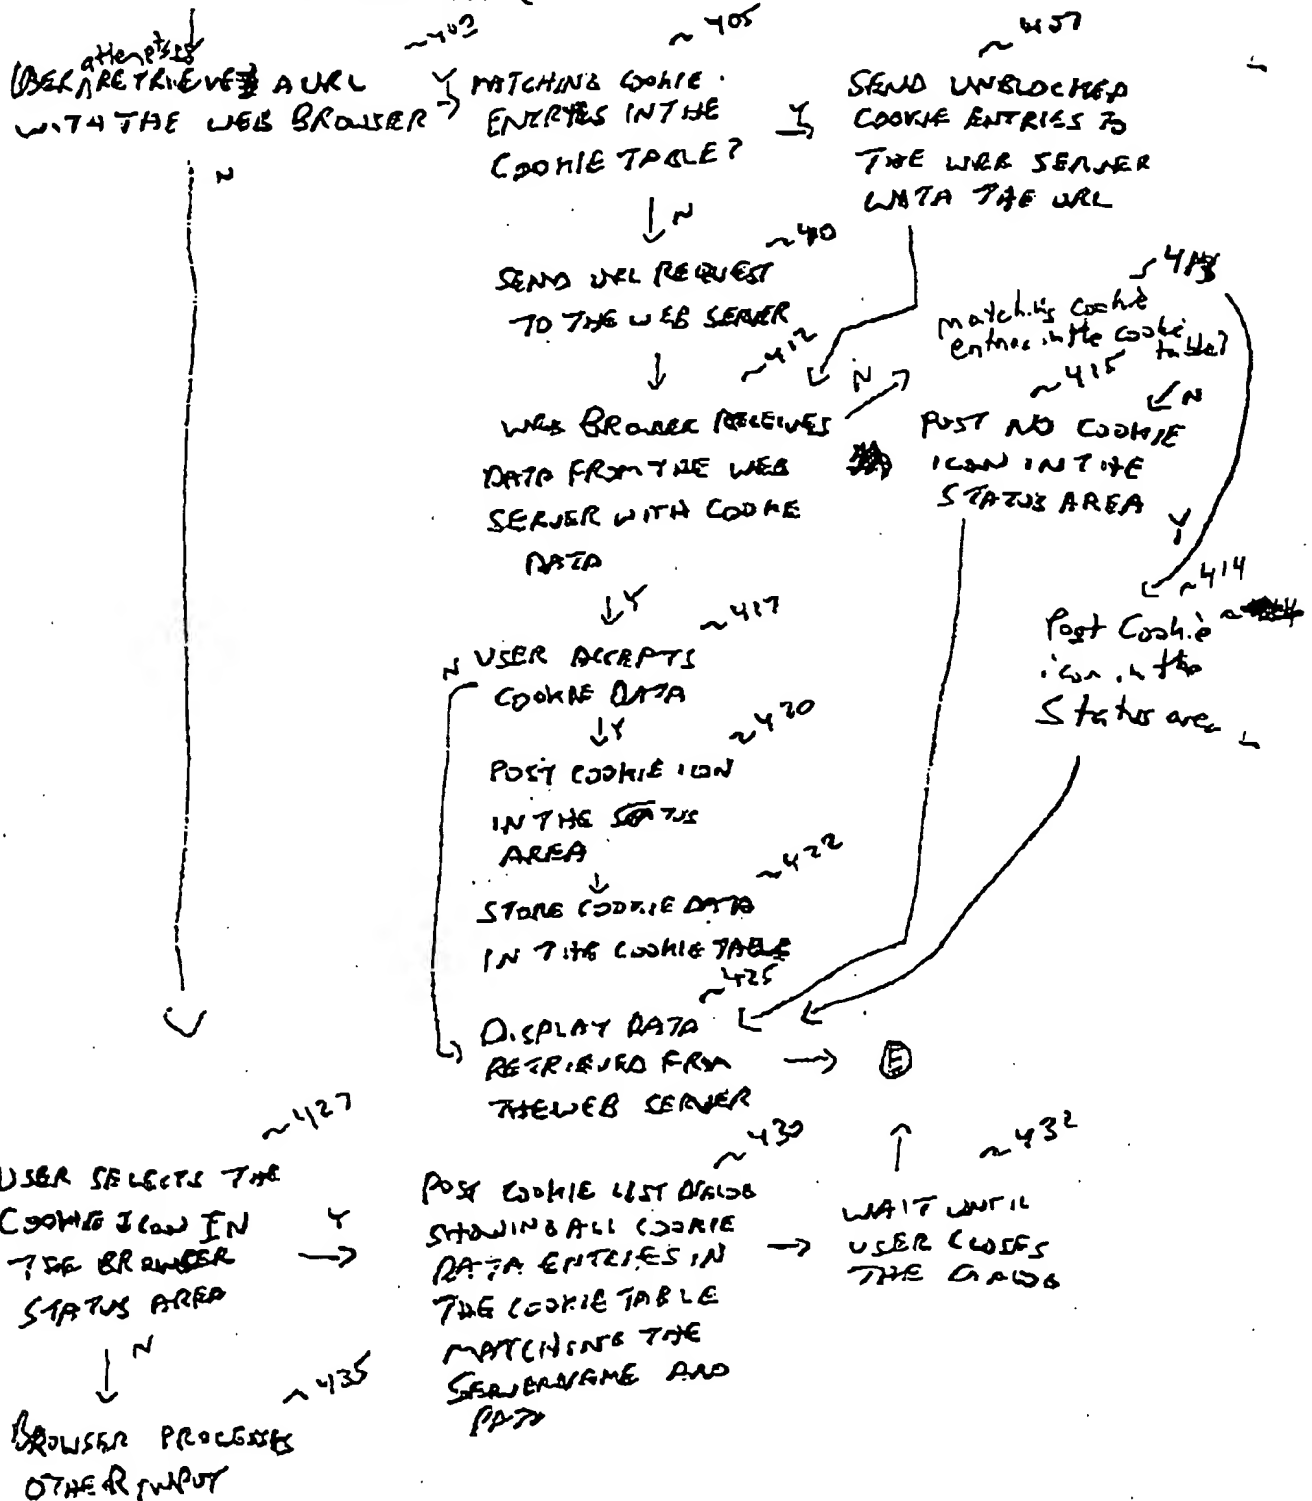 attempts to
~403
USER ^ RETRIEVES A URL
WITH THE WEB BROWSER
Y
N
~405
MATCHING COOKIE
ENTRYES IN THE
COOKIE TABLE?
Y
N
~407
SEND UNBLOCKED
COOKIE ENTRIES TO
THE WEB SERVER
WITH THE URL
~410
SEND URL REQUEST
TO THE WEB SERVER
~412
WEB BROWSER RECEIVES
DATA FROM THE WEB
SERVER WITH COOKIE
DATA
N
Y
~413
matching cookie
entries in the cookie
table?
N
Y
~415
POST NO COOKIE
ICON IN THE
STATUS AREA
~414
Post Cookie
icon in the
Status area
~417
N USER ACCEPTS
COOKIE DATA
Y
~420
POST COOKIE ICON
IN THE STATUS
AREA
~422
STORE COOKIE DATA
IN THE COOKIE TABLE
~425
DISPLAY DATA
RETRIEVED FROM
THE WEB SERVER
E
~427
USER SELECTS THE
COOKIE ICON IN
THE BROWSER
STATUS AREA
Y
N
~430
POST COOKIE LIST DIALOG
SHOWING ALL COOKIE
DATA ENTRIES IN
THE COOKIE TABLE
MATCHING THE
SERVERNAME AND
PATH
~432
WAIT UNTIL
USER CLOSES
THE DIALOG
~435
BROWSER PROCESSES
OTHER INPUT